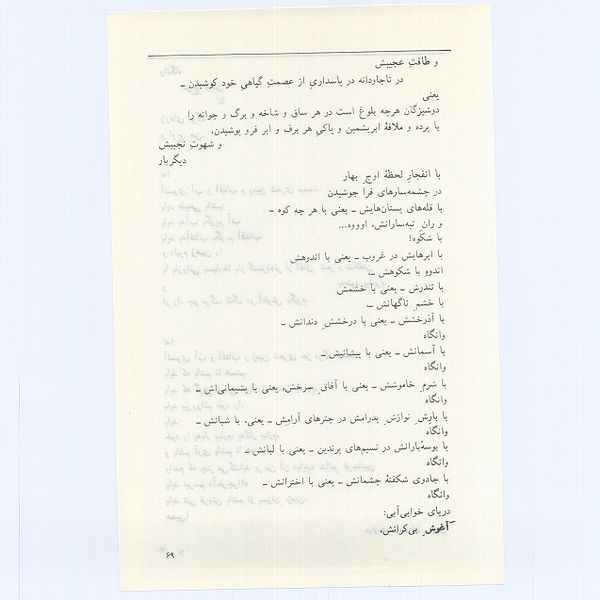 و طاقتِ عجیبش
در تاجاودانه در پاسداریِ از عصمتِ گیاهیِ خود کوشیدن ـ
یعنی
دوشیزگانِ هرچه بلوغ است در هر ساق و شاخه و برگ و جوانه را
با پرده و ملافهٔ ابریشمین و پاکیِ هر برف و ابر فرو پوشیدن،
و شهوتِ نجیبش
دیگربار
با انفجارِ لحظهٔ اوجِ بهار
در چشمه‌سارهای فرا جوشیدن
با قله‌های پستان‌هایش ـ یعنی با هر چه کوه ـ
و رانِ تپه‌سارانش، اوووه...
با شکوه!
با ابرهایش در غروب ـ یعنی با اندوهش
اندوهِ با شکوهش ـ،
با تندرش ـ یعنی با خشمش
با خشمِ ناگهانش ـ،
با آذرخشش ـ یعنی با درخششِ دندانش ـ
وانگاه
با آسمانش ـ یعنی با پیشانیش ـ
وانگاه
با شرمِ خاموشش ـ یعنی با آفاقِ سرخش، یعنی با پشیمانی‌اش ـ
وانگاه
با بارشِ نوازشِ پدرامش در چترهای آرامش ـ یعنی، با شبانش ـ
وانگاه
با بوسهٔبارانش در نسیم‌های پرندین ـ یعنی با لبانش ـ
وانگاه
با جادوی شکفتهٔ چشمانش ـ یعنی با اخترانش ـ
وانگاه
دریای خوابی‌آبی:
آغوشِ بی‌کرانش.
۶۹